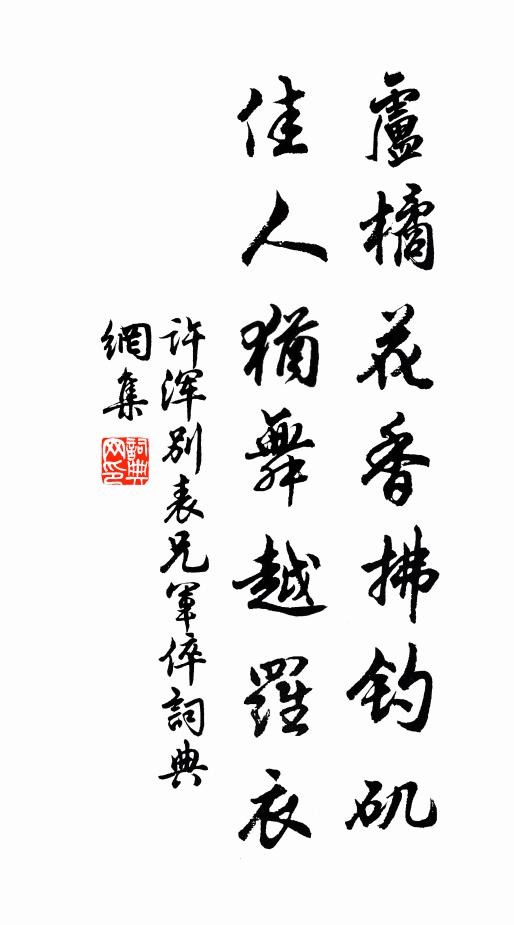 盧橘花香拂釣矶
佳人猶舞越羅衣
许渾别表兄軍倅詞典
網集
詞典
网印